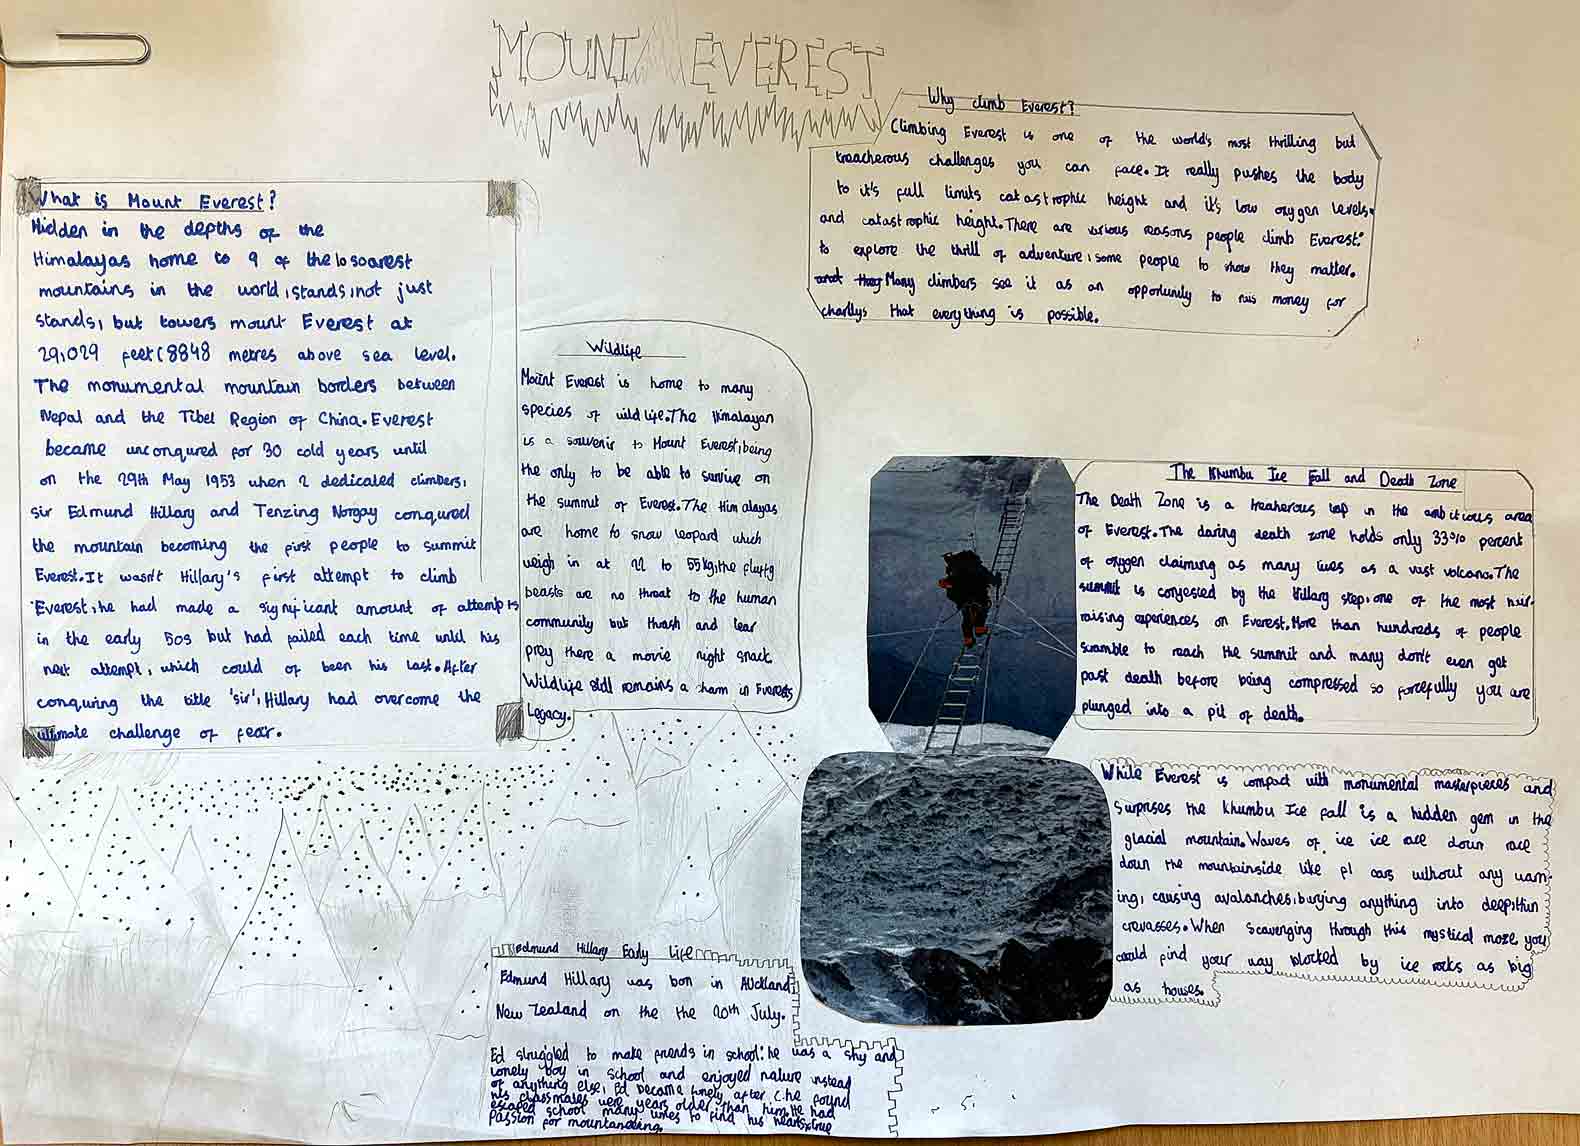 MOUNT EVEREST
What is Mount Everest?
Hidden in the depths of the
Himalayas home to 9 of the 10 soarest
mountains in the world, stands, not just
stands, but towers mount Everest at
29,029 feet (8848 metres above sea level.
The monumental mountain borders between
Nepal and the Tibet Region of China. Everest
became unconqured for 30 cold years until
on the 29th May 1953 when 2 dedicated climbers,
sir Edmund Hillary and Tenzing Norgay conqured
the mountain becoming the first people to summit
Everest. It wasn't Hillary's first attempt to climb
Everest, he had made a significant amount of attempts
in the early 50s but had failed each time until his
next attempt, which could of been his last. After
conquring the title 'sir', Hillary had overcome the
ultimate challenge of fear.
Wildlife
Mount Everest is home to many
species of wildlife. The Himalayan
is a souvenir to Mount Everest, being
the only to be able to survive on
the summit of Everest. The Himalayas
are home to snow leopard which
weigh in at 22 to 55kg, the fluffy
beasts are no threat to the human
community but thrash and tear
prey there a movie night snack.
Wildlife still remains a charm in Everests
Legacy.
Why climb Everest?
Climbing Everest is one of the world's most thrilling but
treacherous challenges you can face. It really pushes the body
to it's full limits catastrophic height and it's low oxygen levels.
and catastrophic height. There are various reasons people climb Everest:
to explore the thrill of adventure, some people to show they matter.
and they Many climbers see it as an opportunity to rais money for
charitys that everything is possible.
The Khumbu Ice Fall and Death Zone
The Death Zone is a treaherous lap in the ambitious area
of Everest. The daring death zone holds only 33% percent
of oxygen claiming as many lives as a vast volcano. The
summit is congested by the Hillary step, one of the most hair-
raising experiences on Everest. More than hundreds of people
scramble to reach the summit and many don't even get
past death before being compressed so forcefully you are
plunged into a pit of death.
While Everest is compact with monumental masterpieces and
surprises the Khumbu Ice fall is a hidden gem in the
glacial mountain. Waves of ice ice race down race
down the mountainside like f1 cars without any warn-
ing, causing avalanches, burying anything into deep, thin
crevasses. When scavenging through this mystical maze you
could find your way blocked by ice rocks as big
as houses.
Edmund Hillary Early Life
Edmund Hillary was bon in Auckland,
New Zealand on the the 20th July.
Ed struggled to make friends in school: he was a shy and
lonely boy in school and enjoyed nature instead
of anything else, Ed became lonely after he found
his classmates were years older than him. He had
escaped school many times to find his hearts true
passion for mountaneering.